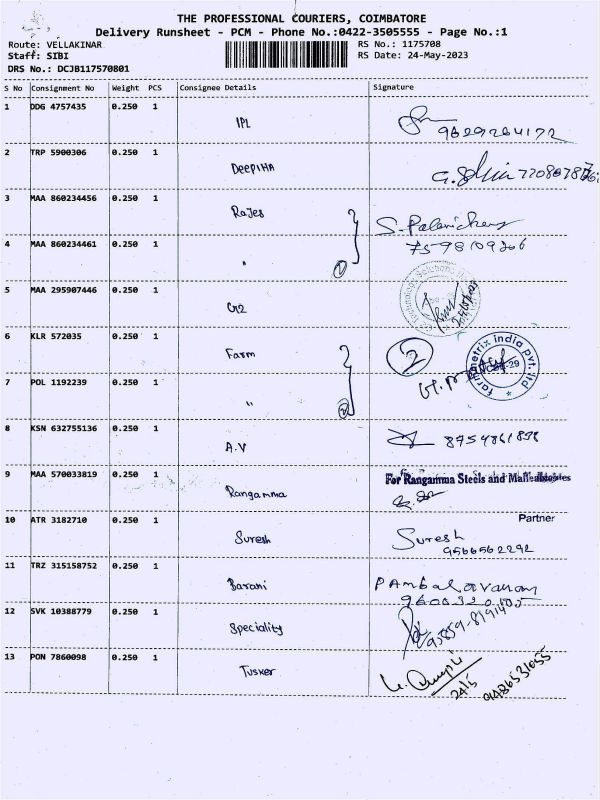 THE PROFESSIONAL COURIERS, COIMBATORE
Delivery Runsheet - PCM - Phone No.:0422-3505555 - Page No.:1
Route: VELLAKINAR RS No.: 1175708
Staff: SIBI RS Date: 24-May-2023
DRS No.: DCJB117570801
S No Consignment No Weight PCS Consignee Details Signature
1 DDG 4757435 0.250 1 IPL
9629264172
2 TRP 5900306 0.250 1 Deepiha
3 MAA 860234456 0.250 1 Rajes
4 MAA 860234461 0.250 1 "
7598109366
5 MAA 295907446 0.250 1 G2
6 KLR 572035 0.250 1 Farm 2
farmetrix india pvt. ltd
7 POL 1192239 0.250 1 " 2
8 KSN 632755136 0.250 1 A.V
9 MAA 570033819 0.250 1 Rangamma
For Rangamma Steels and Malleables
Partner
10 ATR 3182710 0.250 1 Suresh Suresh
9566562292
11 TRZ 315158752 0.250 1 Barani
12 SVK 10388779 0.250 1 Speciality
13 PON 7860098 0.250 1 Tusker
24/5 9486531655